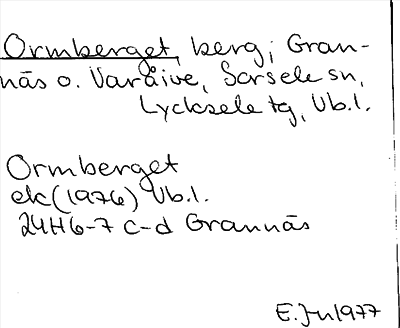 Ormberget, berg; Gran-
näs o. Varåive, Sorsele sn,
Lycksele tg, Vb.l.
Ormberget
ek (1976) Vb.l.
24H6-7 c-d Grannäs
E. Ju 1977